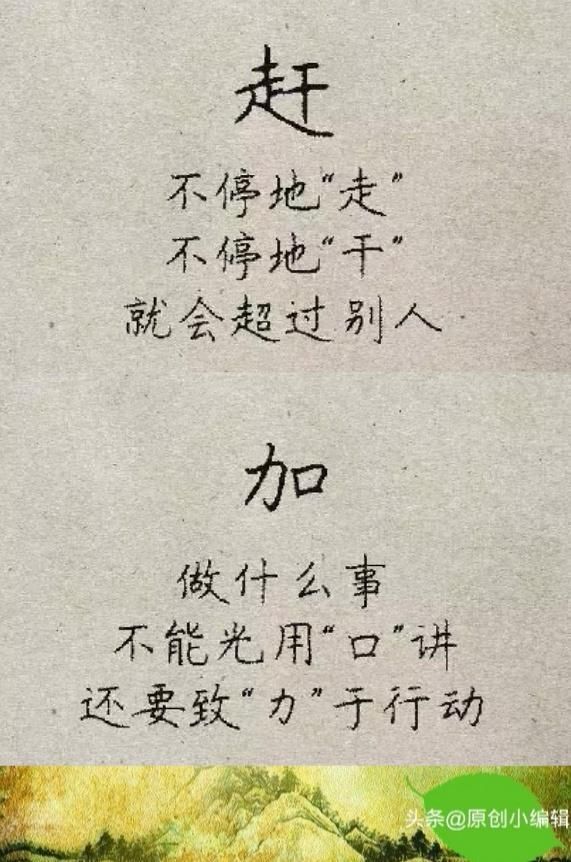 赶
不停地“走”
不停地“干”
就会超过别人
加
做什么事
不能光用“口”讲
还要致“力”于行动
头条@原创小编辑